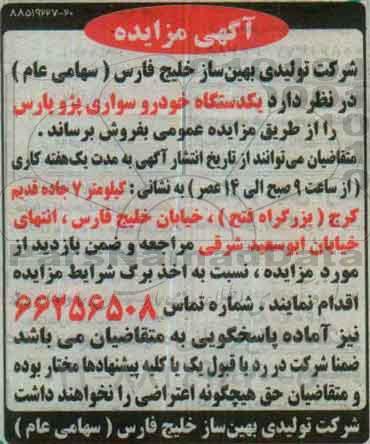 ۸۸۵۱۹۶۶۷-۲۰
آگهی مزایده
شرکت تولیدی بهین‌ساز خلیج فارس ( سهامی عام )
در نظر دارد یکدستگاه خودرو سواری پژو پارس
را از طریق مزایده عمومی بفروش برساند .
متقاضیان می‌توانند از تاریخ انتشار آگهی به مدت یک‌هفته کاری
( از ساعت ۹ صبح الی ۱۴ عصر ) به نشانی : کیلومتر ۷ جاده قدیم
کرج ( بزرگراه فتح ) ، خیابان خلیج فارس ، انتهای
خیابان ابوسعید شرقی مراجعه و ضمن بازدید از
مورد مزایده ، نسبت به اخذ برگ شرایط مزایده
اقدام نمایند . شماره تماس ۶۶۲۵۶۵۰۸
نیز آماده پاسخگویی به متقاضیان می باشد
ضمنا شرکت در رد یا قبول یک یا کلیه پیشنهادها مختار بوده
و متقاضیان حق هیچگونه اعتراضی را نخواهند داشت
شرکت تولیدی بهین‌ساز خلیج فارس ( سهامی عام )